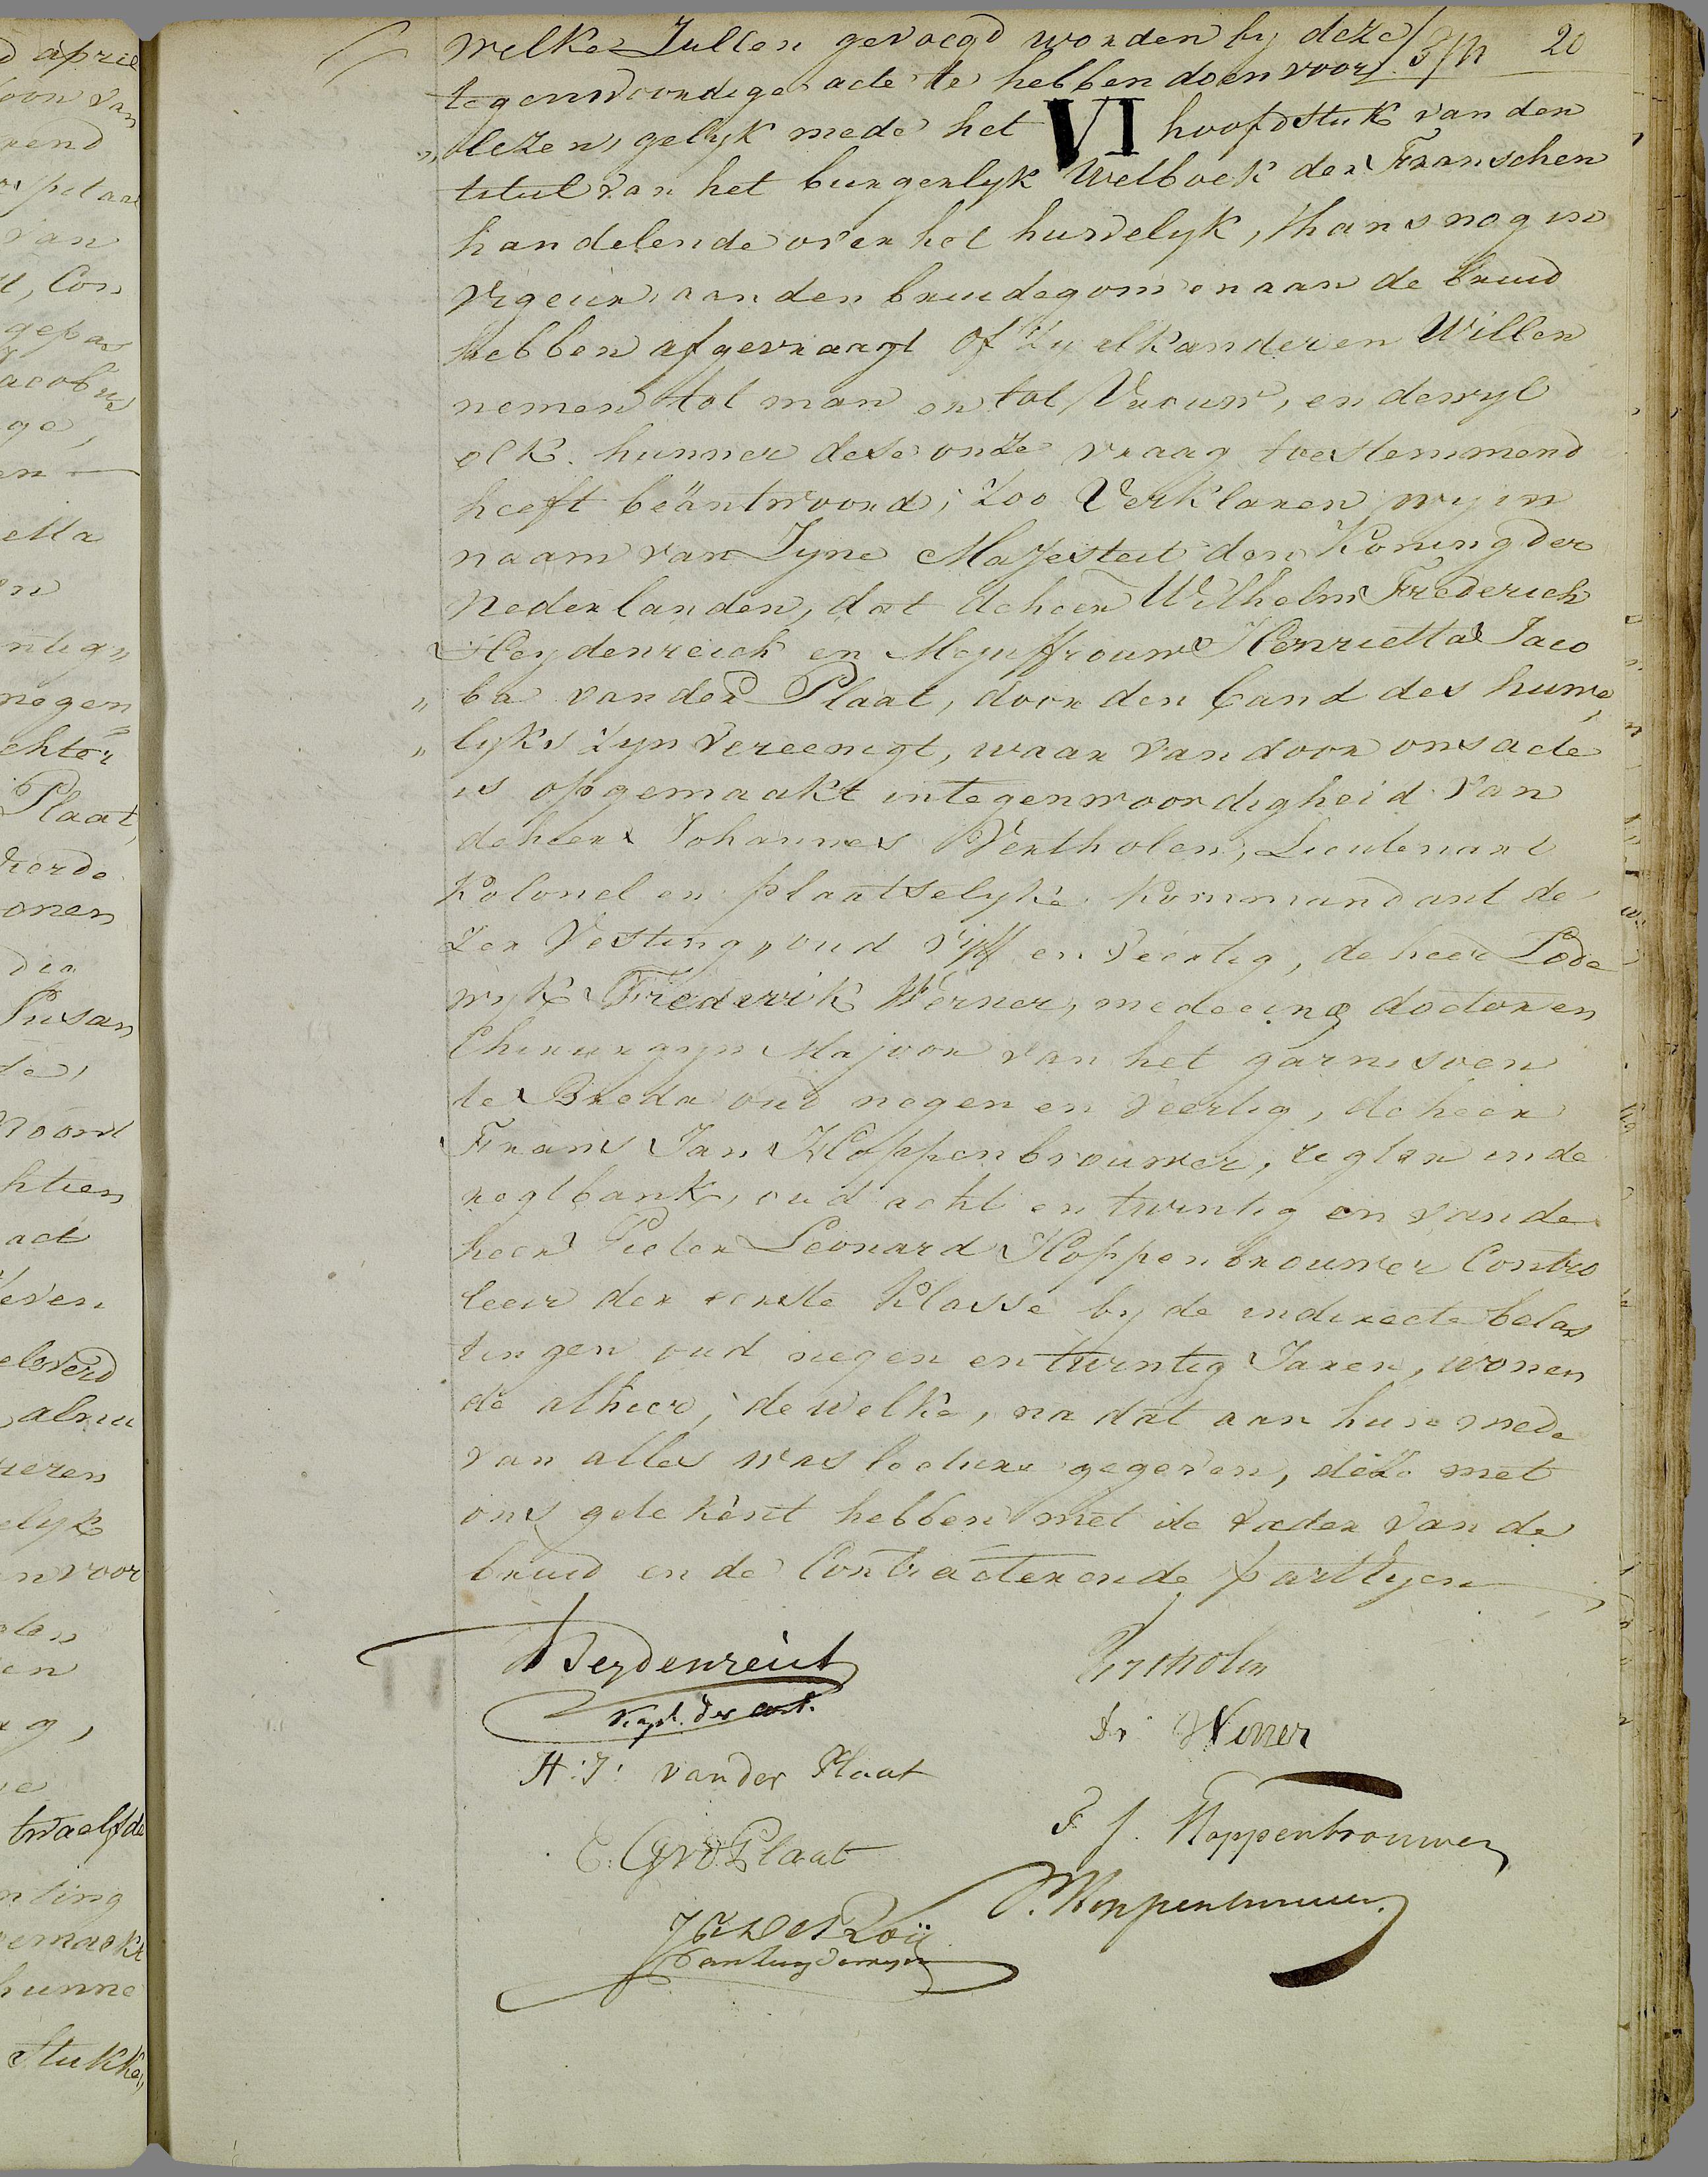 d april
oon van
rend
van
Con
gepas
acob
ge,
en
ella
en
negen
chter
Plaat,
vierde
onen
die
Susan
de,
htien
act
seven
eloverd
alsme
ieren
elyk
n voor
en
g,
twaelfde
nting
emaakt
hunne
Stukke,,
welke Zullen gevoegd worden by deze 20
tegenswoordige acte te hebben doen voor
,,lezen, gelyk mede het VI hoofdstuk van den
titul van het burgerlyk Wetboek der Franschen
handelende over het huwelyk, thans nog in
vigeur, aan den bruidegom en aan de bruid
hebben afgevraagt of Zy elkanderen Willen
nemen tot man en tot Vrouw, en dewyl
elk hunner dese onze vraag toestemmend
heeft beäntwoord; Zoo Verklaren wy in
naam van Zyne Majesteit den Koning der
Nederlanden, dat de heer Wilhelm Frederich
Heydenreich en Mejuffrouwe Henrietta Jaco
,, ba van der Plaat, door den band des huwe,
,, lyks zyn Vereenigt, waar van door ons acte
is opgemaakt in tegenwoordigheid van
de heer Johannes Vertholen, Lieutenant
Kolonel en plaatselyke Kommandant de
zer Vesting, oud vijf en veertig, de heer Lode
wyk Frederik Werner, medecinæ doctor en
Chirurgyn Majoor van het garnisoen
te Breda oud negen en veertig, de heer
Frans Jan Hoppenbrouwer, regter in de
regtbank, oud acht en twintig en van de
heer Pieter Leonard Hoppenbrouwer Contro
leur der eerste Klasse by de indirecte belas
tingen oud negen en twintig Jaren, wonen
de alhier, de welke, na dat aan hun mede
van alles was lecture gegeven, deze met
ons getekent hebben met de vader van de
bruid en de Contracterende partyen
Heydenreich
Kapt. der art.
H: J: van der Plaat
C: G V D Plaat
Vertholen
Dr Werner
F J. Hoppenbrouwer
P. Hoppenbrouwer